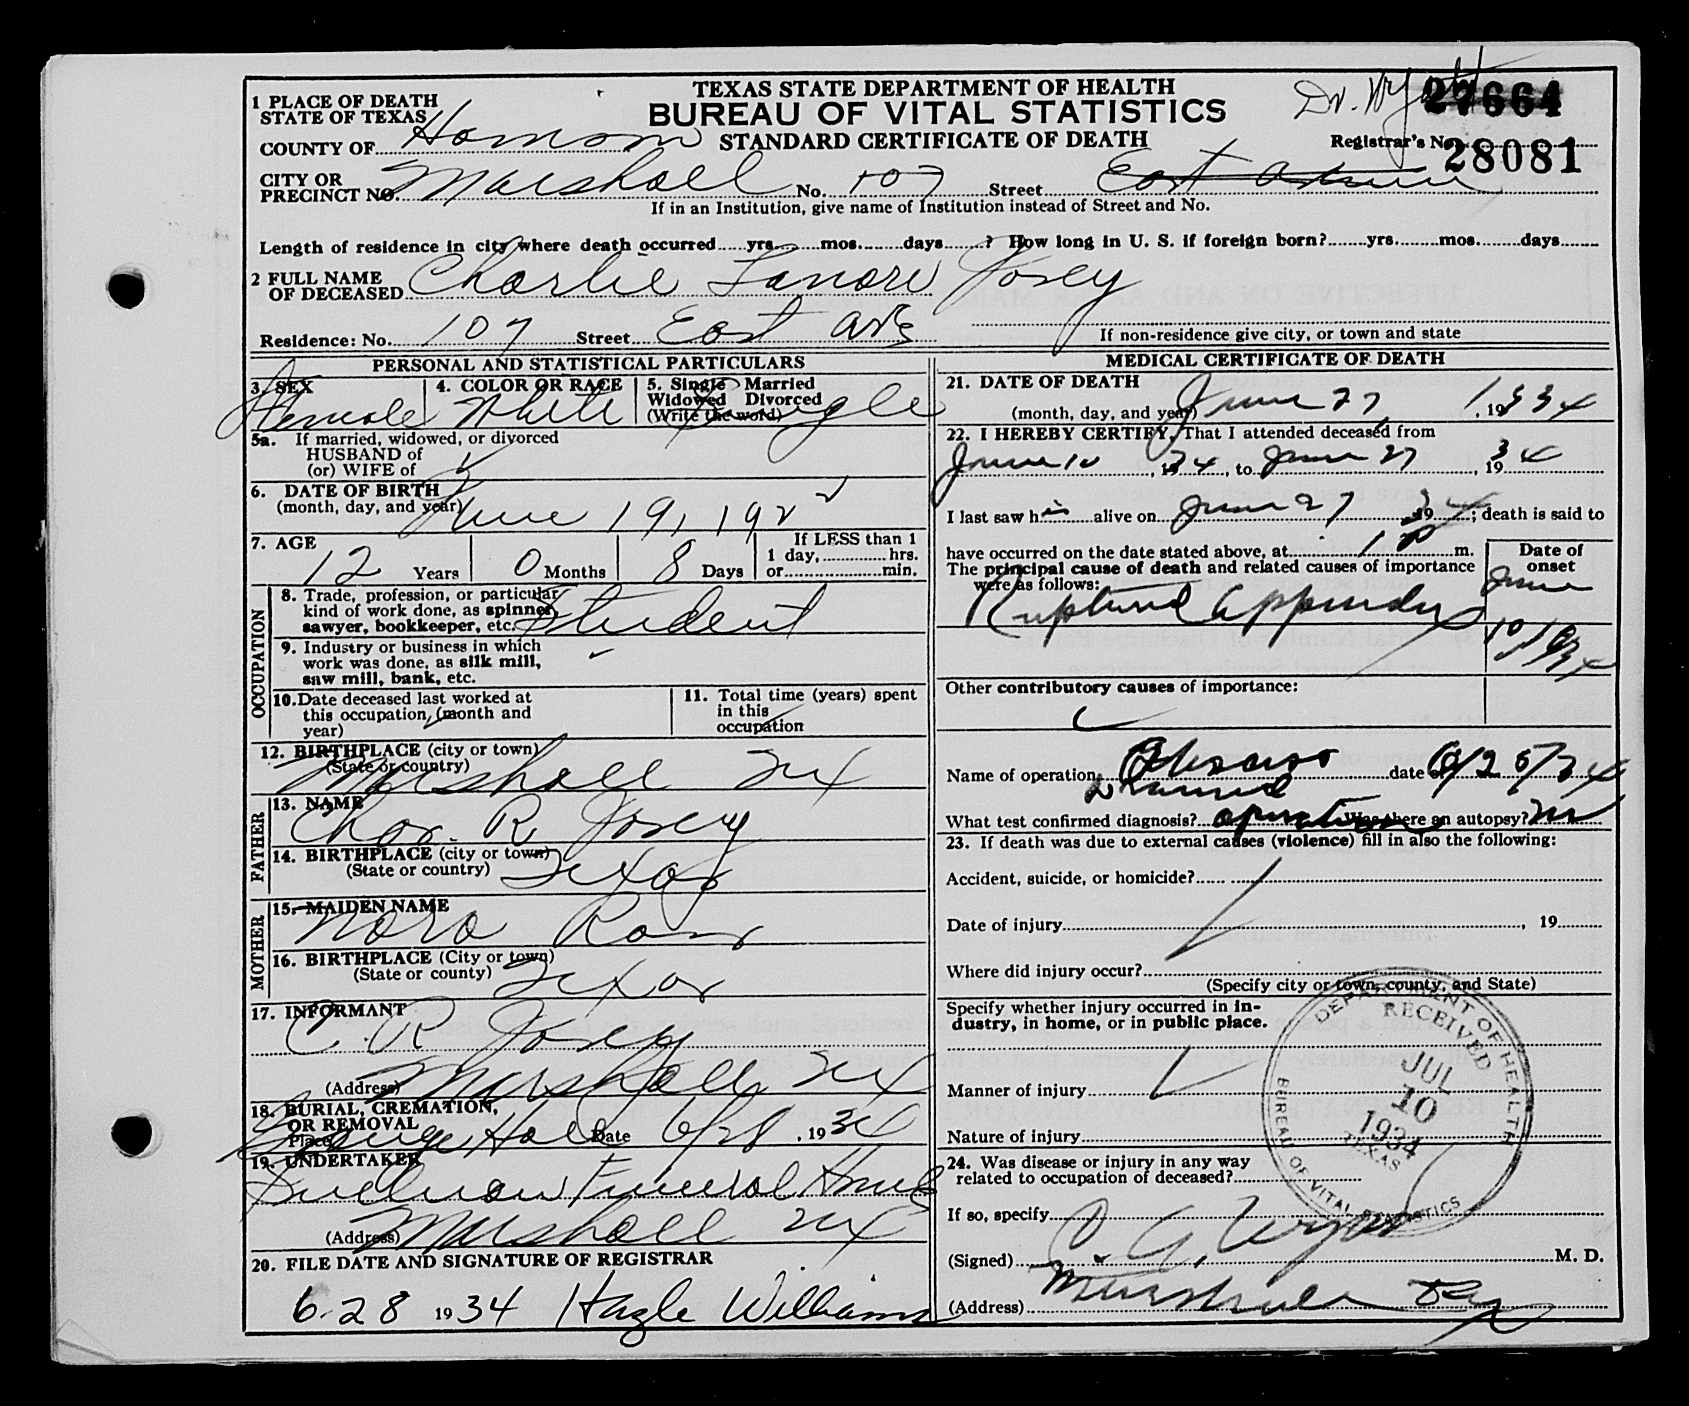 TEXAS STATE DEPARTMENT OF HEALTH
BUREAU OF VITAL STATISTICS
STANDARD CERTIFICATE OF DEATH
Dr. Wyatt
27664
Registrar's No.
28081
1 PLACE OF DEATH
STATE OF TEXAS
COUNTY OF Harrison
CITY OR
PRECINCT NO. Marshall No. 107 Street East
If in an Institution, give name of Institution instead of Street and No.
Length of residence in city where death occurred yrs. mos. days ? How long in U. S. if foreign born? yrs. mos. days
2 FULL NAME
OF DECEASED Charlie Josey
Residence: No. 107 Street East Ave
If non-residence give city, or town and state
PERSONAL AND STATISTICAL PARTICULARS
3. SEX Female
4. COLOR OR RACE White
5. Single Married
Widowed Divorced
(Write the word) Single
5a. If married, widowed, or divorced
HUSBAND of
(or) WIFE of
6. DATE OF BIRTH
(month, day, and year) June 19, 1922
7. AGE
12 Years 0 Months 8 Days
If LESS than 1
1 day, hrs.
or min.
OCCUPATION
8. Trade, profession, or particular
kind of work done, as spinner,
sawyer, bookkeeper, etc. Student
9. Industry or business in which
work was done, as silk mill,
saw mill, bank, etc.
10. Date deceased last worked at
this occupation, (month and
year)
11. Total time (years) spent
in this
occupation
12. BIRTHPLACE (city or town)
(State or country) Marshall Tex
FATHER
13. NAME
Chas. R Josey
14. BIRTHPLACE (city or town)
(State or country) Texas
MOTHER
15. MAIDEN NAME
Nora Ross
16. BIRTHPLACE (City or town)
(State or county) Texas
17. INFORMANT
C. R Josey
(Address) Marshall Tex
18. BURIAL, CREMATION,
OR REMOVAL
Place Grange Hall Date 6/28, 1934
19. UNDERTAKER
Sullivan Funeral Home
(Address) Marshall Tex
20. FILE DATE AND SIGNATURE OF REGISTRAR
6-28 1934 Hazle Williams
MEDICAL CERTIFICATE OF DEATH
21. DATE OF DEATH
(month, day, and year) June 27, 1934
22. I HEREBY CERTIFY, That I attended deceased from
June 10, 1934, to June 27, 1934
I last saw h is alive on June 27 1934; death is said to
have occurred on the date stated above, at 1 P m.
The principal cause of death and related causes of importance
were as follows:
Ruptured appendix
Date of
onset
June
10/1934
Other contributory causes of importance:
Name of operation Abscess date of 6/25/34
drained
What test confirmed diagnosis? operation Was there an autopsy? no
23. If death was due to external causes (violence) fill in also the following:
Accident, suicide, or homicide?
Date of injury , 19
Where did injury occur?
(Specify city or town, county, and State)
Specify whether injury occurred in in-
dustry, in home, or in public place.
Manner of injury
Nature of injury
24. Was disease or injury in any way
related to occupation of deceased?
If so, specify
(Signed) M. D.
(Address) Marshall Tex
DEPARTMENT OF HEALTH
RECEIVED
JUL
10
1934
TEXAS
BUREAU OF VITAL STATISTICS